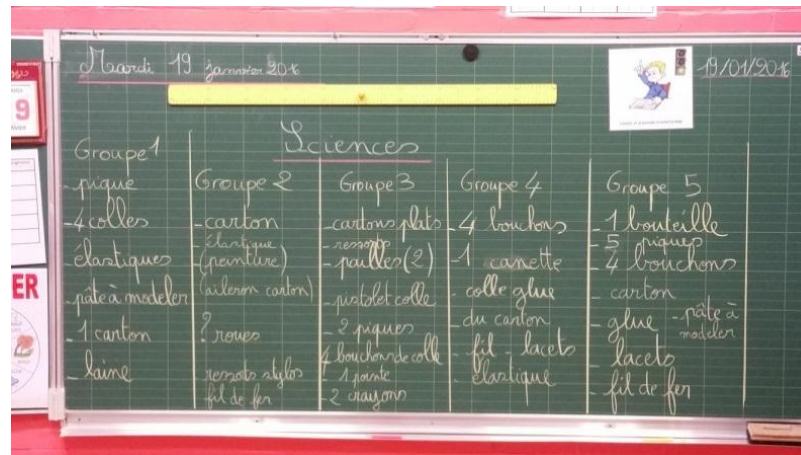 Mardi 19 janvier 2016
19/01/2016
9
ER
Sciences
Groupe 1
- pique
- 4 colles
- élastiques
- pâte à modeler
- 1 carton
- laine
Groupe 2
- carton
- élastique
(peinture)
(aileron carton)
? roues
ressorts stylos
fil de fer
Groupe 3
- cartons plats
- ressorts
- pailles (2)
- pistolet colle
- 2 piques
4 bouchons de colle
1 pointe
- 2 crayons
Groupe 4
- 4 bouchons
- 1 canette
- colle glue
- du carton
- fil - lacets
- élastique
Groupe 5
- 1 bouteille
- 5 piques
- 4 bouchons
- carton
- glue - pâte à
modeler
- lacets
- fil de fer